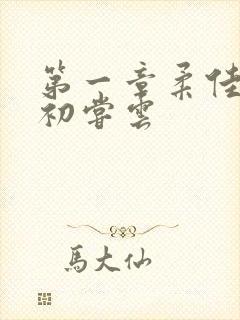 第一章柔佳
初嘗雲
馬大仙